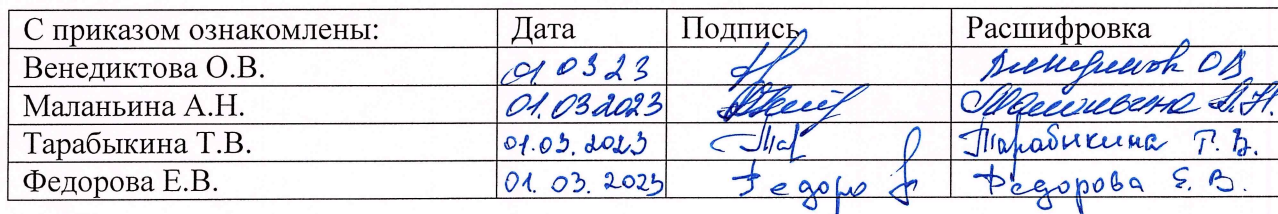 С приказом ознакомлены: Дата Подпись Расшифровка
Венедиктова О.В. 01.03 23 Венедиктов ОВ
Маланьина А.Н. 01.03.2023 Маланьина А.Н.
Тарабыкина Т.В. 01.03.2023 Тар Тарабыкина Т.В.
Федорова Е.В. 01.03.2023 Федоро Федорова Е.В.